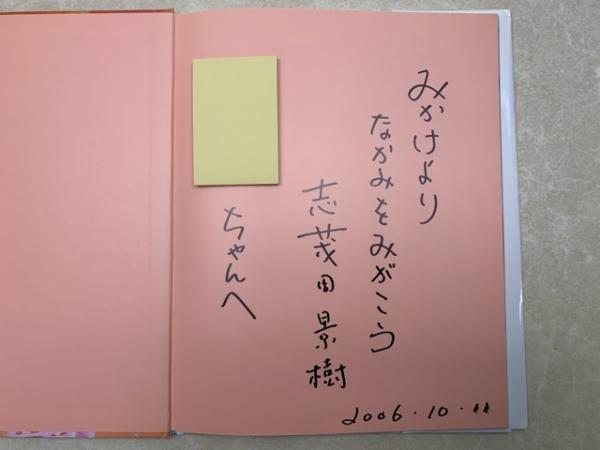 みかけより
なかみをみがこう
志茂田景樹
ちゃんへ
2006.10.11